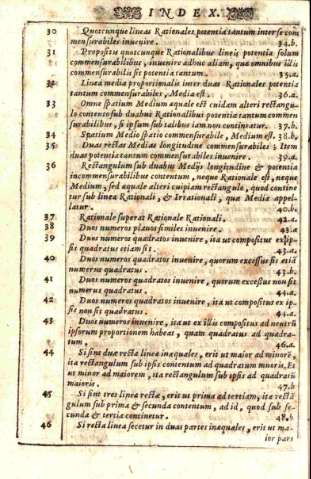 INDEX.
30 Quotcunque lineas Rationales potentia tantum inter se com
mensurabiles inuenire. 34.b.
31 Propositis quotcunque Rationalibus lineis potentia solum
commensurabilibus, inuenire adhuc aliam, quæ omnibus illis
commensurabilis sit potentia tantum. 35.a.
32 Linea media proportionalis inter duas Rationales potentia
tantum commensurabiles, Media est. 36.a.
33 Omne spatium Medium æquale est cuidam alteri rectangu-
lo contento sub duabus Rationalibus potentia tantum commen
surabilibus, si ipsum sub talibus iam non contineatur. 37.b.
34 Spatium Medio spatio commensurabile, Medium est. 38.b
35 Duas rectas Medias longitudine commensurabiles: Item
duas potentia tantum commensurabiles inuenire. 39.a.
36 Rectangulum sub duabus Medijs longitudine & potentia
incommensurabilibus contentum, neque Rationale est, neque
Medium, sed æquale alteri cuipiam rectangulo, quod contine
tur sub linea Rationali, & Irrationali, quæ Media appel-
latur. 40.b.
37 Rationale superat Rationale Rationali. 42.a.
38 Duos numeros planos similes inuenire. 43.a
39 Duos numeros quadratos inuenire, ita ut compositus ex ip-
sis quadratus etiam sit. 43.a
40 Duos numeros quadratos inuenire, quorum excessus sit etiã
numerus quadratus. 43.b.
41 Duos numeros quadratos inuenire, quorum excessus non sit
numerus quadratus. 44.a.
42 Duos numeros quadratos inuenire, ita ut compositus ex ip-
sis non sit quadratus. 44.a.
43 Duos numeros inuenire, ita ut ex illis compositus ad neutrũ
ipsorum proportionem habeat, quam quadratus ad quadra-
tum. 46.a
44 Si sint duæ rectæ lineæ inæquales, erit ut maior ad minorẽ,
ita rectangulum sub ipsis contentum ad quadratum minoris. Et
ut minor ad maiorem, ita rectangulum sub ipsis ad quadratũ
maioris. 47.b
45 Si sint tres lineæ rectæ, erit ut prima ad tertiam, ita rectã
gulum sub prima & secunda contentum, ad id, quod sub se-
cunda & tertia continetur. 48.b
46 Si recta linea secetur in duas partes inæquales, erit ut ma-
ior pars